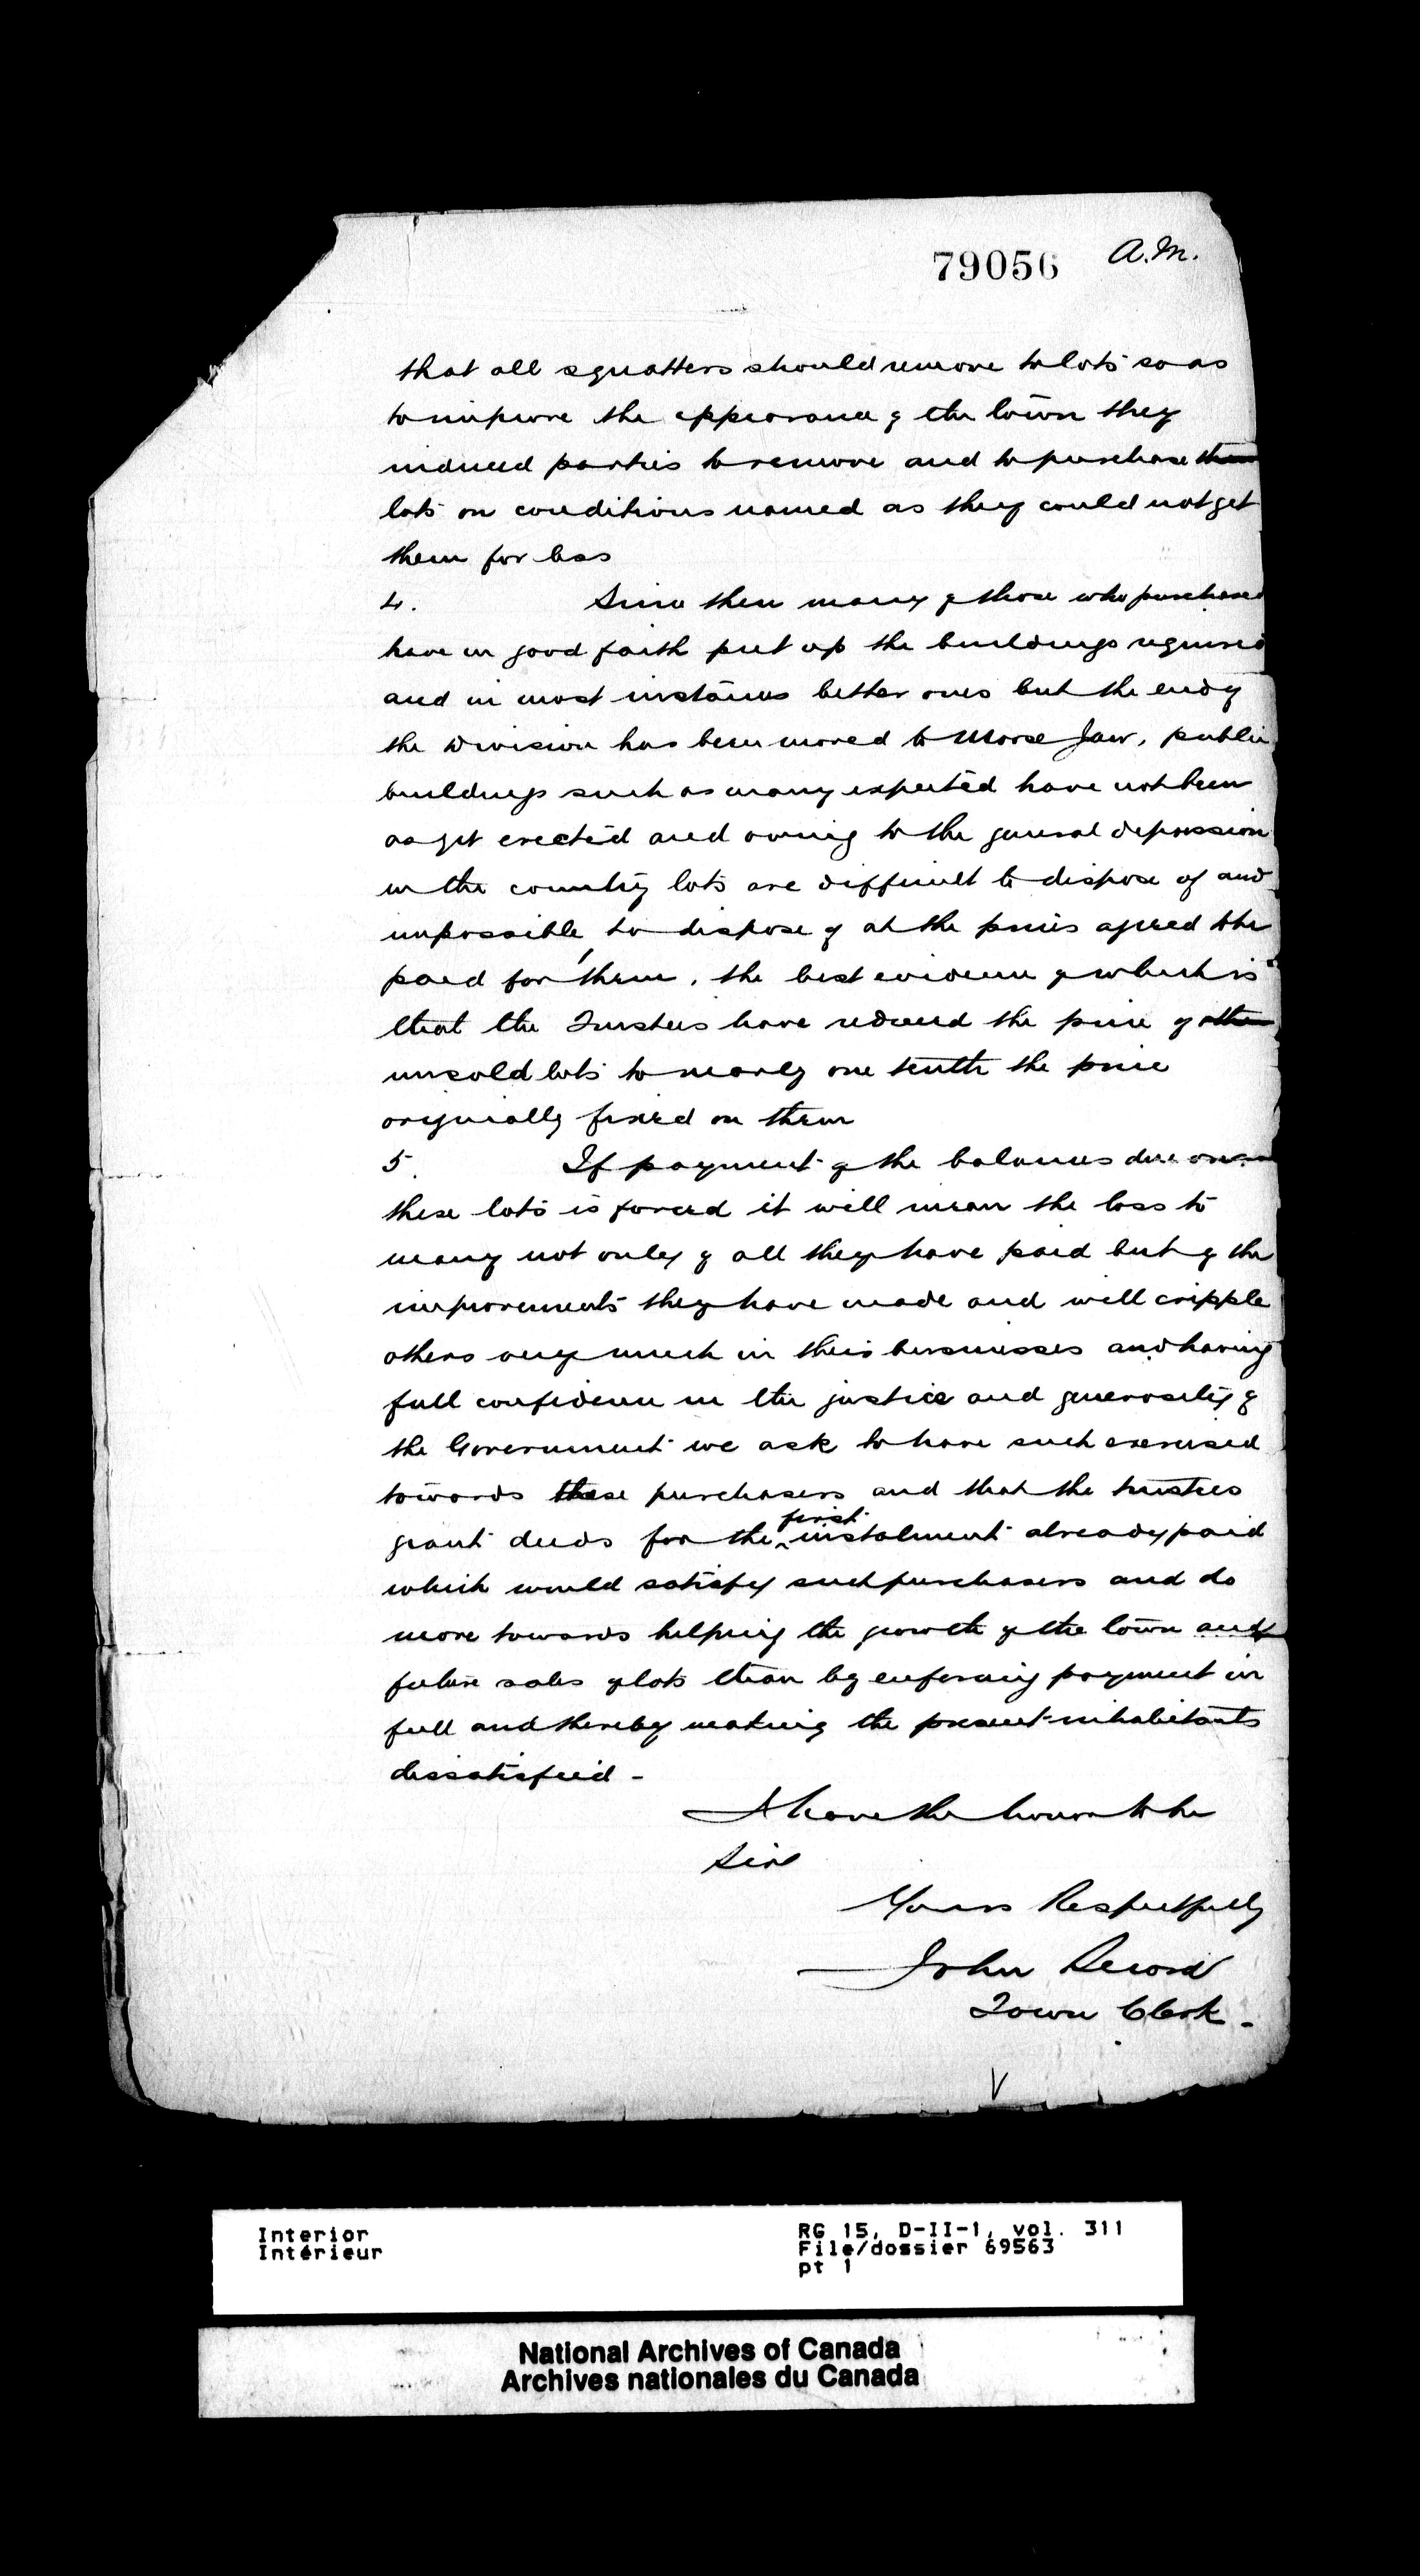 79056 A.M.
that all squatters should remove to lots so as
to improve the appearance of the town they
induced parties to remove and to purchase
lots on conditions named as they could not get
them for less
4. Since then many of those who purchased
have in good faith put up the buildings required
and in most instances better ones but the end of
the Division has been moved to Moose Jaw, public
buildings such as many expected have not been
as yet erected and owing to the general depression
in the country lots are difficult to dispose of and
impossible to dispose of at the prices agreed to be
paid for them, the best evidence of which is
that the Trustees have reduced the price of
unsold lots to nearly one tenth the price
originally fixed on them
5. If payment of the balances due on
these lots is forced it will mean the loss to
many not only of all they have paid but of the
improvements they have made and will cripple
others very much in their businesses and having
full confidence in the justice and generosity of
the Government we ask to have such exercised
towards these purchasers and that the trustees
grant deeds for the first instalment already paid
which would satisfy such purchasers and do
more towards helping the growth of the town and
future sales of lots than by enforcing payment in
full and thereby making the present inhabitants
dissatisfied -
I have the honor to be
Sir
Yours Respectfully
John Secord
Town Clerk -
Interior
Intérieur
RG 15, D-II-1, vol. 311
File/dossier 69563
pt 1
National Archives of Canada
Archives nationales du Canada